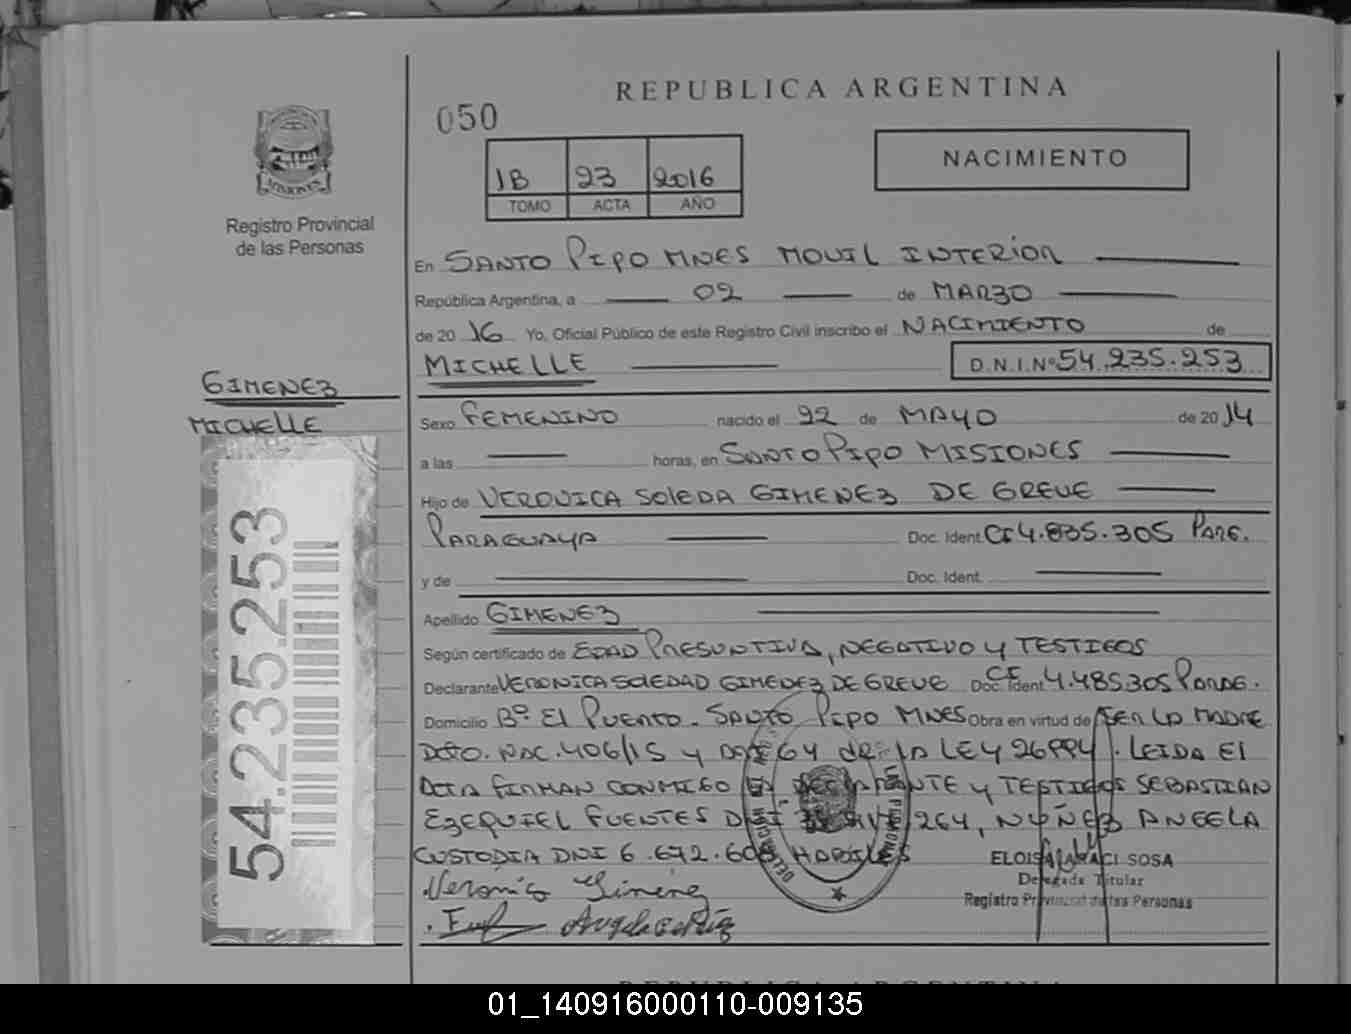 REPUBLICA ARGENTINA
050
1B 23 2016
TOMO ACTA AÑO
NACIMIENTO
MISIONES
Registro Provincial
de las Personas
En SANTO PIPO MNES MOVIL INTERIOR
República Argentina, a 02 de MARZO
de 20 16 Yo, Oficial Público de este Registro Civil inscribo el NACIMIENTO de
MICHELLE D.N.I.Nº 54.235.253
GIMENEZ
MICHELLE
54.235.253
Sexo FEMENINO nacido el 22 de MAYO de 20 14
a las horas, en SANTO PIPO MISIONES
Hijo de VERONICA SOLEDA GIMENEZ DE GREVE
PARAGUAYA Doc. Ident. CI 4.835.305 PARG.
y de Doc. Ident.
Apellido GIMENEZ
Según certificado de EDAD PRESUNTIVA, NEGATIVO Y TESTIGOS
Declarante VERONICA SOLEDAD GIMENEZ DE GREVE Doc. Ident. 4.485305
Domicilio Bº El PUENTO. SANTO PIPO MNES Obra en virtud de SER LA MADRE
DCTO. NAC. 406/15 Y 64 de LA LEY . LEIDA El
ACTA FIRMAN CONMIGO LA DECLARANTE Y TESTIGOS SEBASTIAN
EZEQUIEL FUENTES DNI 264, NUÑEZ ANGELA
CUSTODIA DNI 6.672. HABILES
Verónica Gimenez
ELOISA ARACI SOSA
Delegada Titular
Registro Provincial de las Personas
REPUBLICA ARGENTINA
01_140916000110-009135